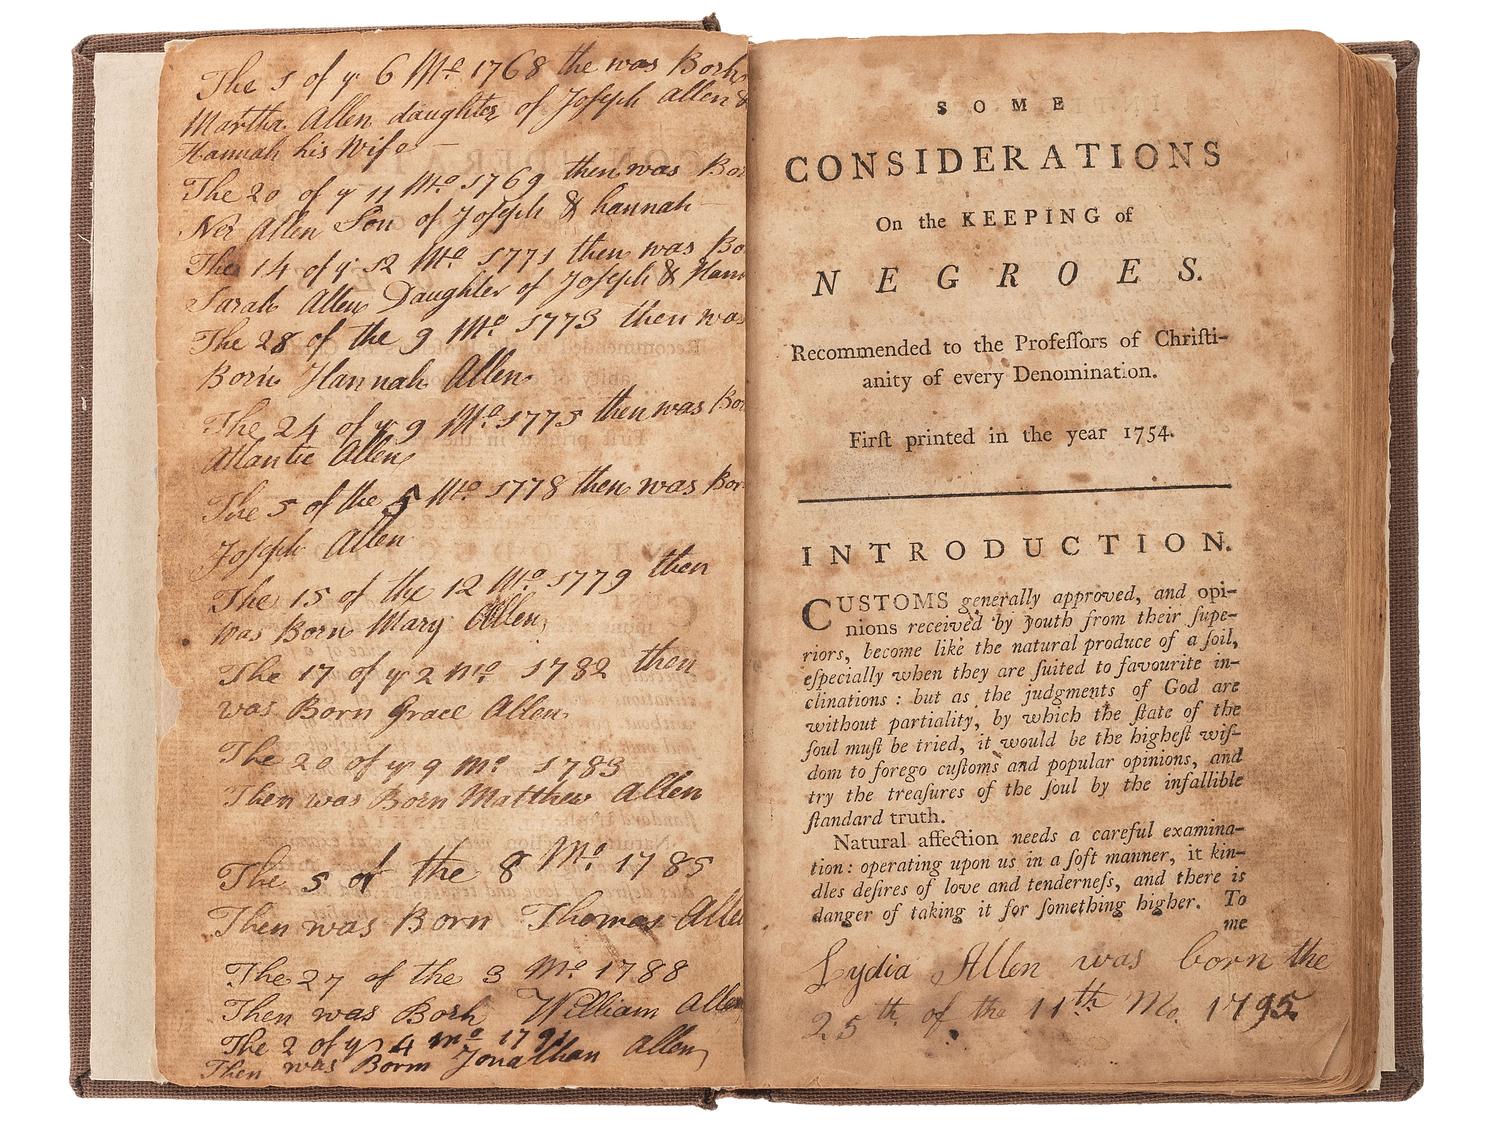 The 5 of yͤ 6 Mo 1768 the was Born
Martha Allen daughter of Joseph Allen &
Hannah his Wife
The 20 of yͤ 11 Mo 1769 then was Bor
Allen Son of Joseph & hannah
The 14 of yͤ 12 Mo 1771 then was Bo
Sarah Allen Daughter of Joseph & Hann
The 28 of the 9 Mo 1773 then was
Born Hannah Allen
The 24 of yͤ 9 Mo 1775 then was Bor
Atlantic Allen
The 5 of the 5 Mo 1778 then was Bor
Joseph Allen
The 15 of the 12 Mo 1779 then
was Born Mary Allen
The 17 of yͤ 2 mo 1782 then
was Born Grace Allen
The 20 of yͤ 9 mo 1783
Then was Born Matthew Allen
The 5 of the 8 Mo 1785
Then was Born Thomas Alle
The 27 of the 3 Mo 1788
Then was Born William Allen
The 2 of yͤ 4 mo
Then was Born Jonathan Allen
SOME
CONSIDERATIONS
On the KEEPING of
NEGROES.
Recommended to the Profeſſors of Chriſti-
anity of every Denomination.
Firſt printed in the year 1754.
INTRODUCTION.
CUSTOMS generally approved, and opi-
nions received by youth from their ſupe-
riors, become like the natural produce of a ſoil,
eſpecially when they are ſuited to favourite in-
clinations: but as the judgments of God are
without partiality, by which the ſtate of the
ſoul muſt be tried, it would be the higheſt wiſ-
dom to forego cuſtoms and popular opinions, and
try the treaſures of the ſoul by the infallible
ſtandard truth.
Natural affection needs a careful examina-
tion: operating upon us in a ſoft manner, it kin-
dles deſires of love and tenderneſs, and there is
danger of taking it for ſomething higher. To
me
Lydia Allen was born the
25th of the 11th Mo. 1795